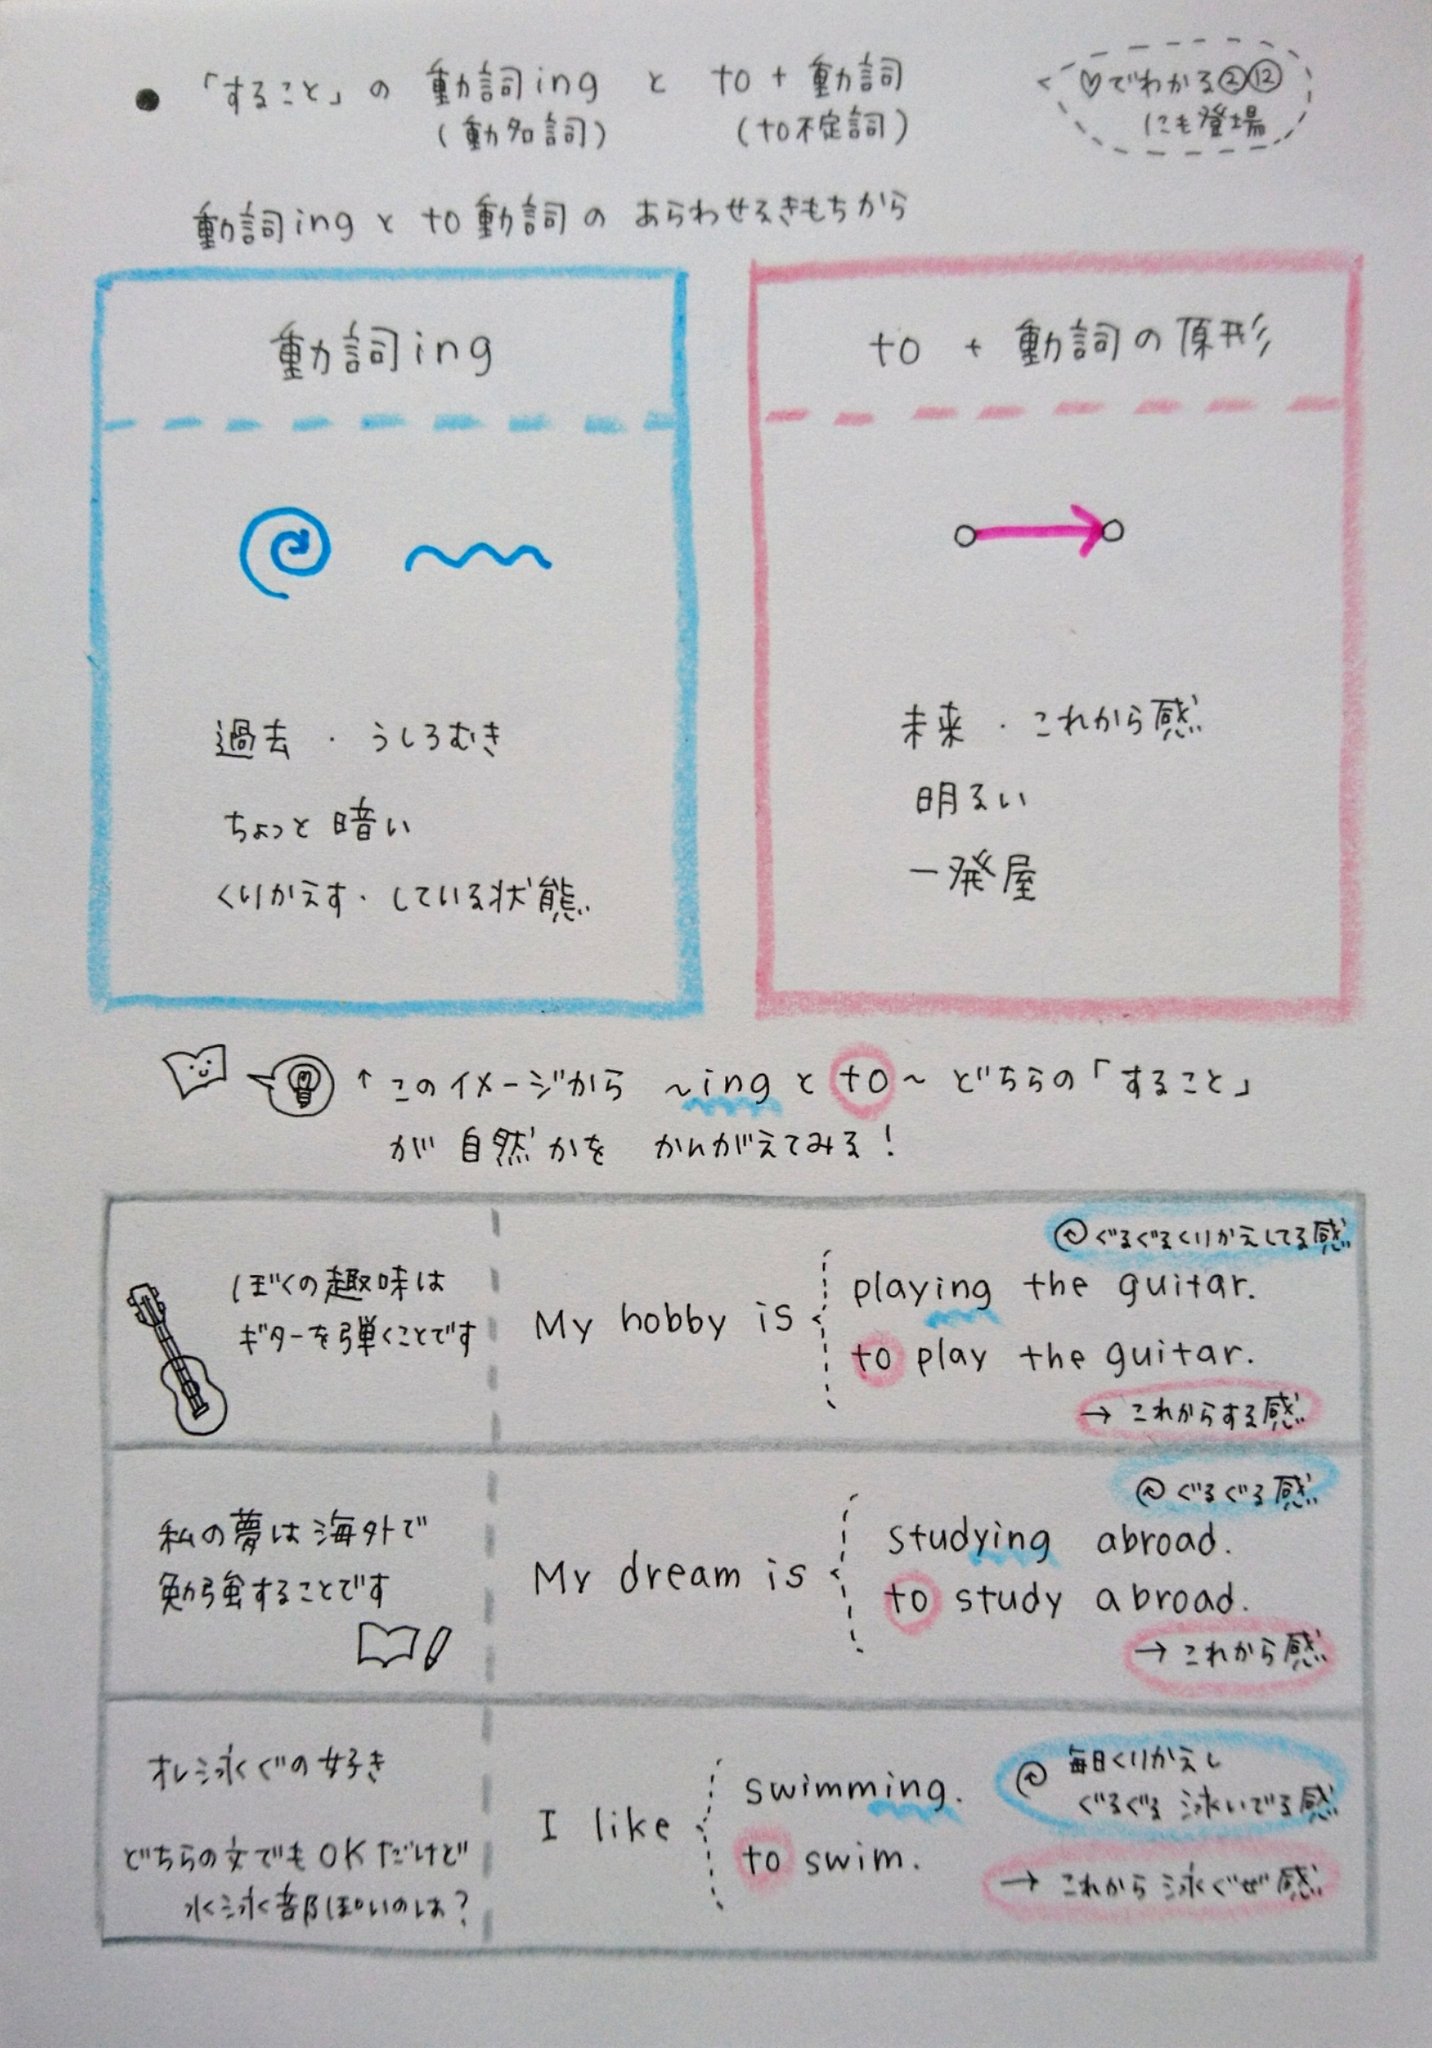 ● 「すること」の 動詞ing と to + 動詞
(動名詞) (to不定詞)
♡でわかる②⑫
にも登場
動詞ingとto動詞の あらわせるきもちから
動詞ing
過去 ・ うしろむき
ちょっと暗い
くりかえす・している状態
to + 動詞の原形
未来 ・ これから感
明るい
一発屋
↑このイメージから ~ingとto~どちらの「すること」
が自然かを かんがえてみる!
ぼくの趣味は
ギターを弾くことです
My hobby is
ぐるぐるくりかえしてる感
playing the guitar.
to play the guitar.
→ これからする感
私の夢は海外で
勉強することです
My dream is
ぐるぐる感
studying abroad.
to study abroad.
→ これから感
オレ泳ぐの好き
どちらの文でもOKだけど
水泳部ぽいのは?
I like
swimming.
to swim.
毎日くりかえし
ぐるぐる泳いでる感
→ これから泳ぐぜ感